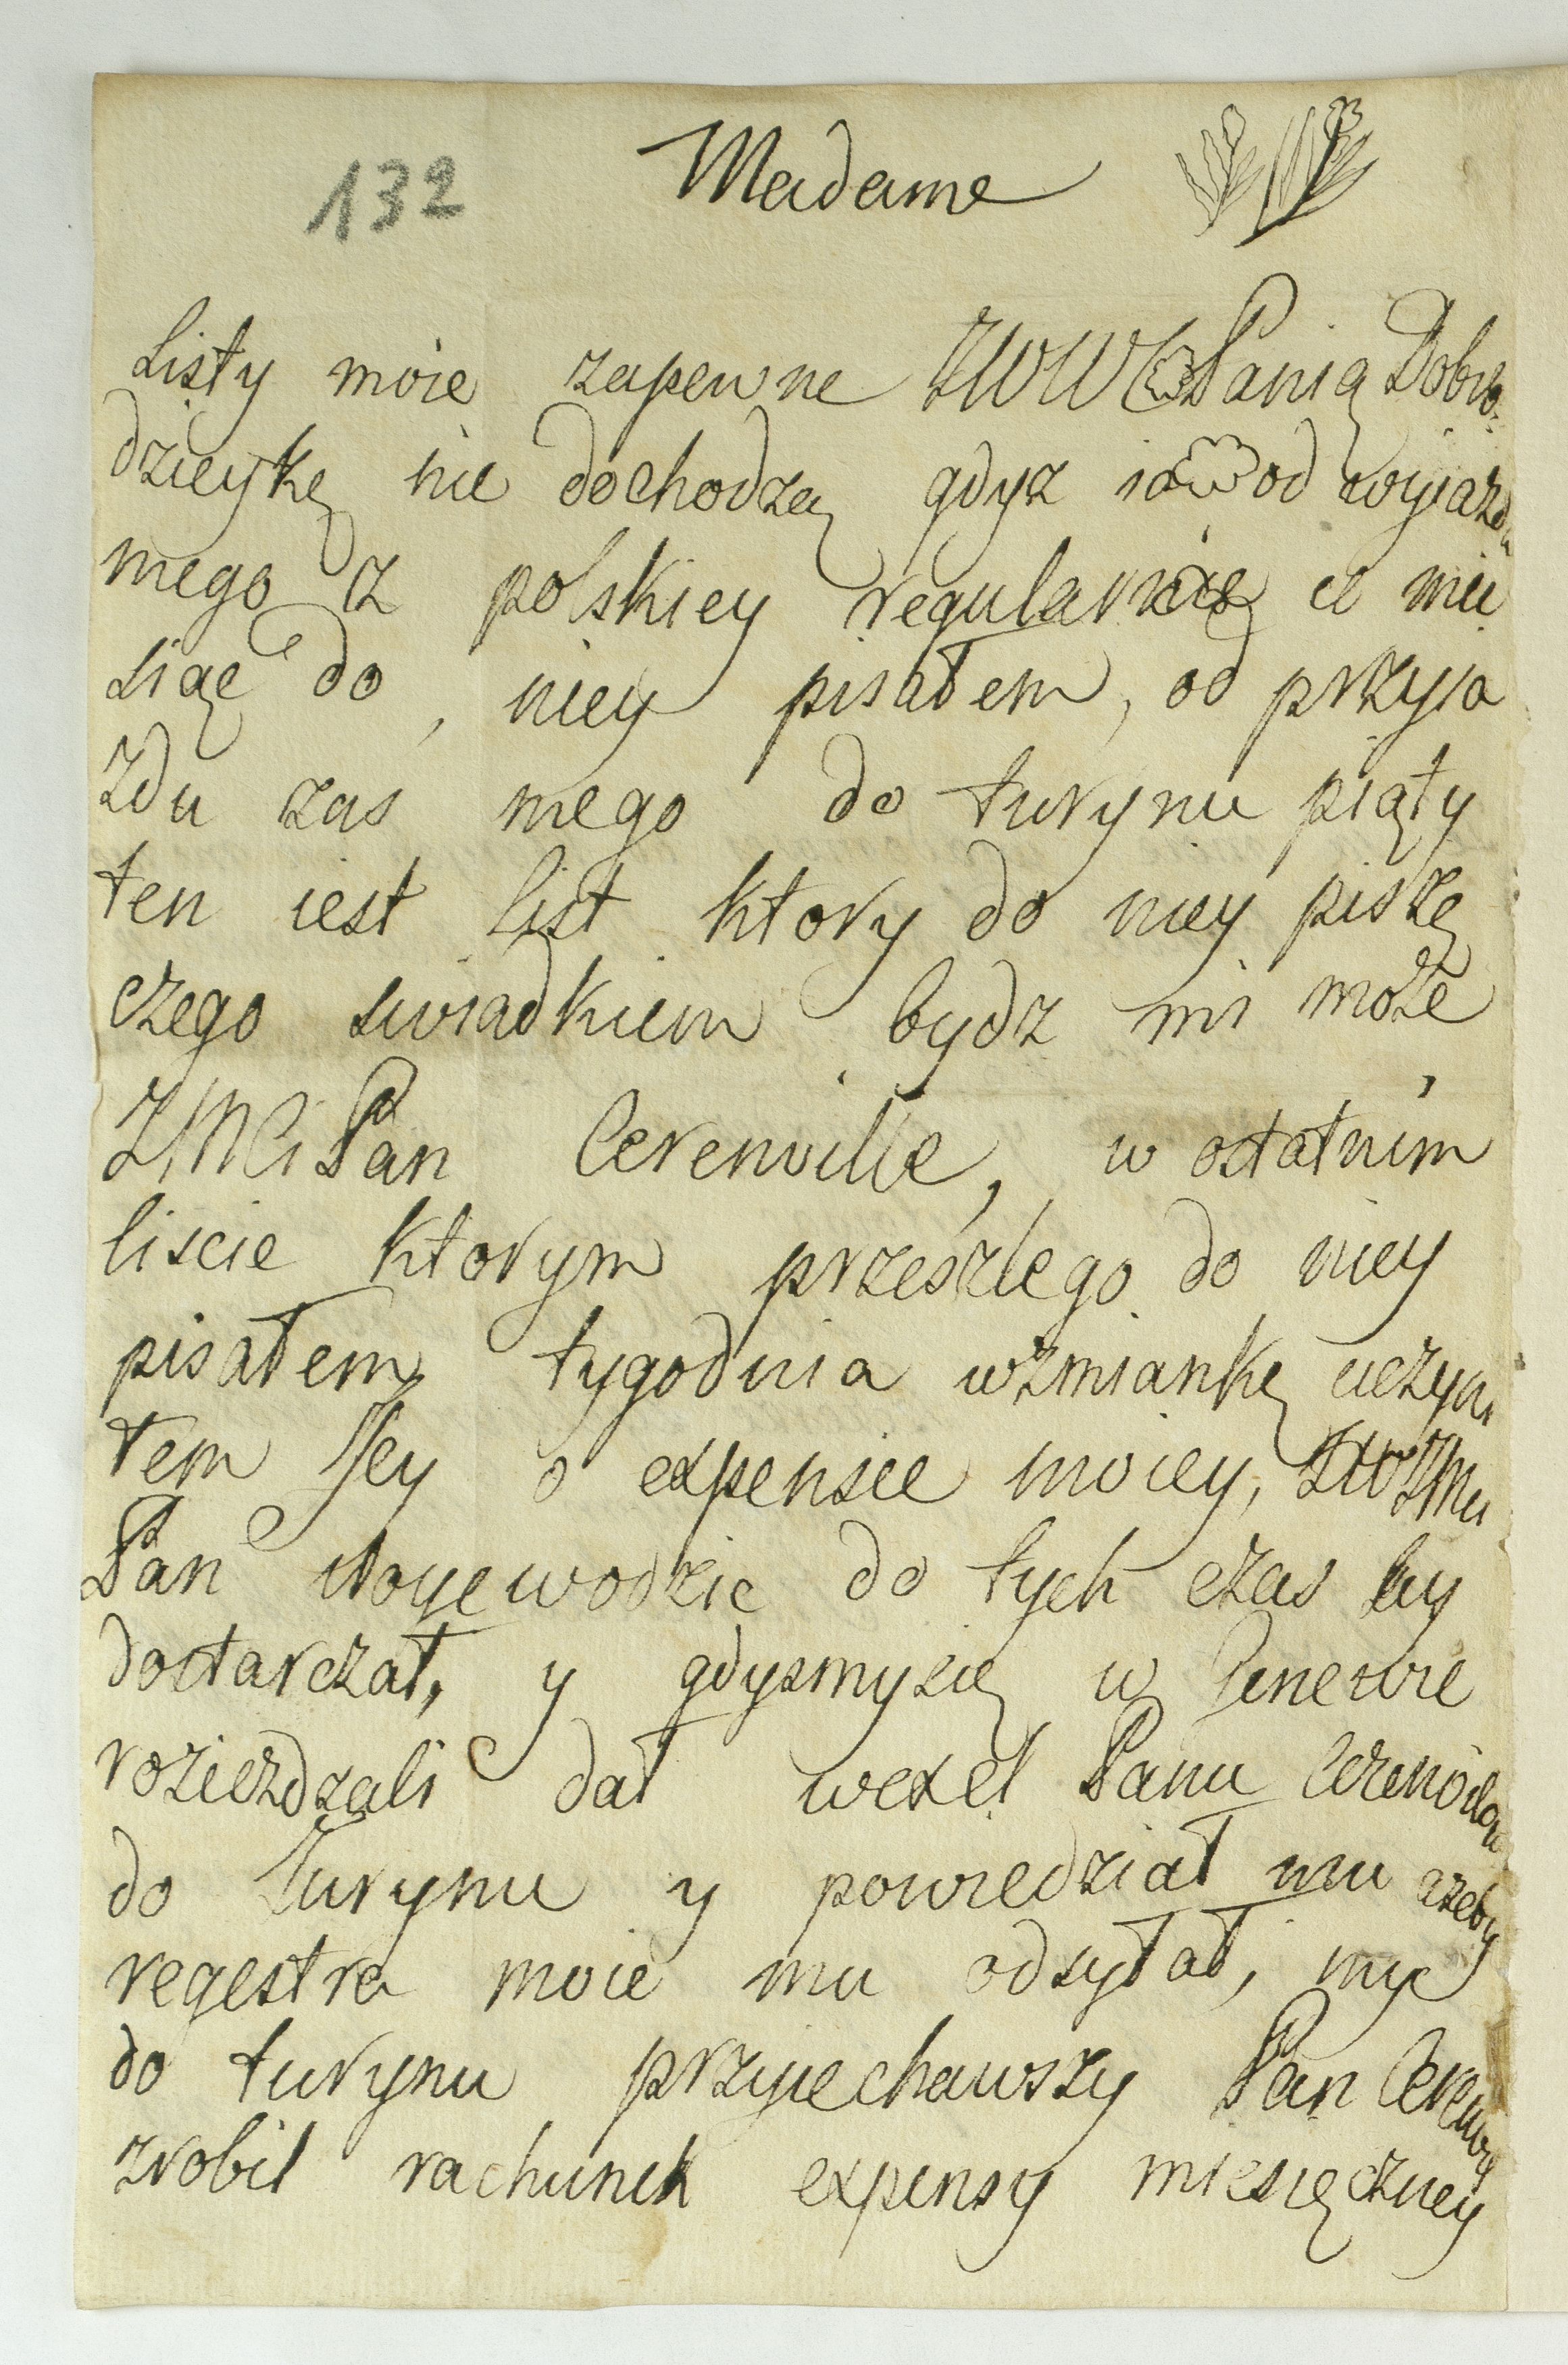 132 Madame
Listy moie zapewne JWW Panią Dobro-
dzieykę nie dochodzą gdyz ia od wyiazdu
mego z polskiey regularnie co mie
siąc do niey pisałem, od przyia
zdu zas mego do turynu piąty
ten iest list ktory do niey piszę
czego swiadkiem bydz mi może
JMCi Pan Cerenville, w ostatnim
liscie ktorym przeszlego do niey
pisałem tygodnia wzmiankę uczyni
łem Jey o expensie moiey,
Pan Woyewodzic do tych czas
dostarczał, y gdysmysię w Genewie
rozieżdzali dał wexel Panu
do Turynu y powiedział mu azeby
regestra moie mu odsyłał,
do turynu przyiechawszy Pan
zrobil rachunek expensy miesięczney